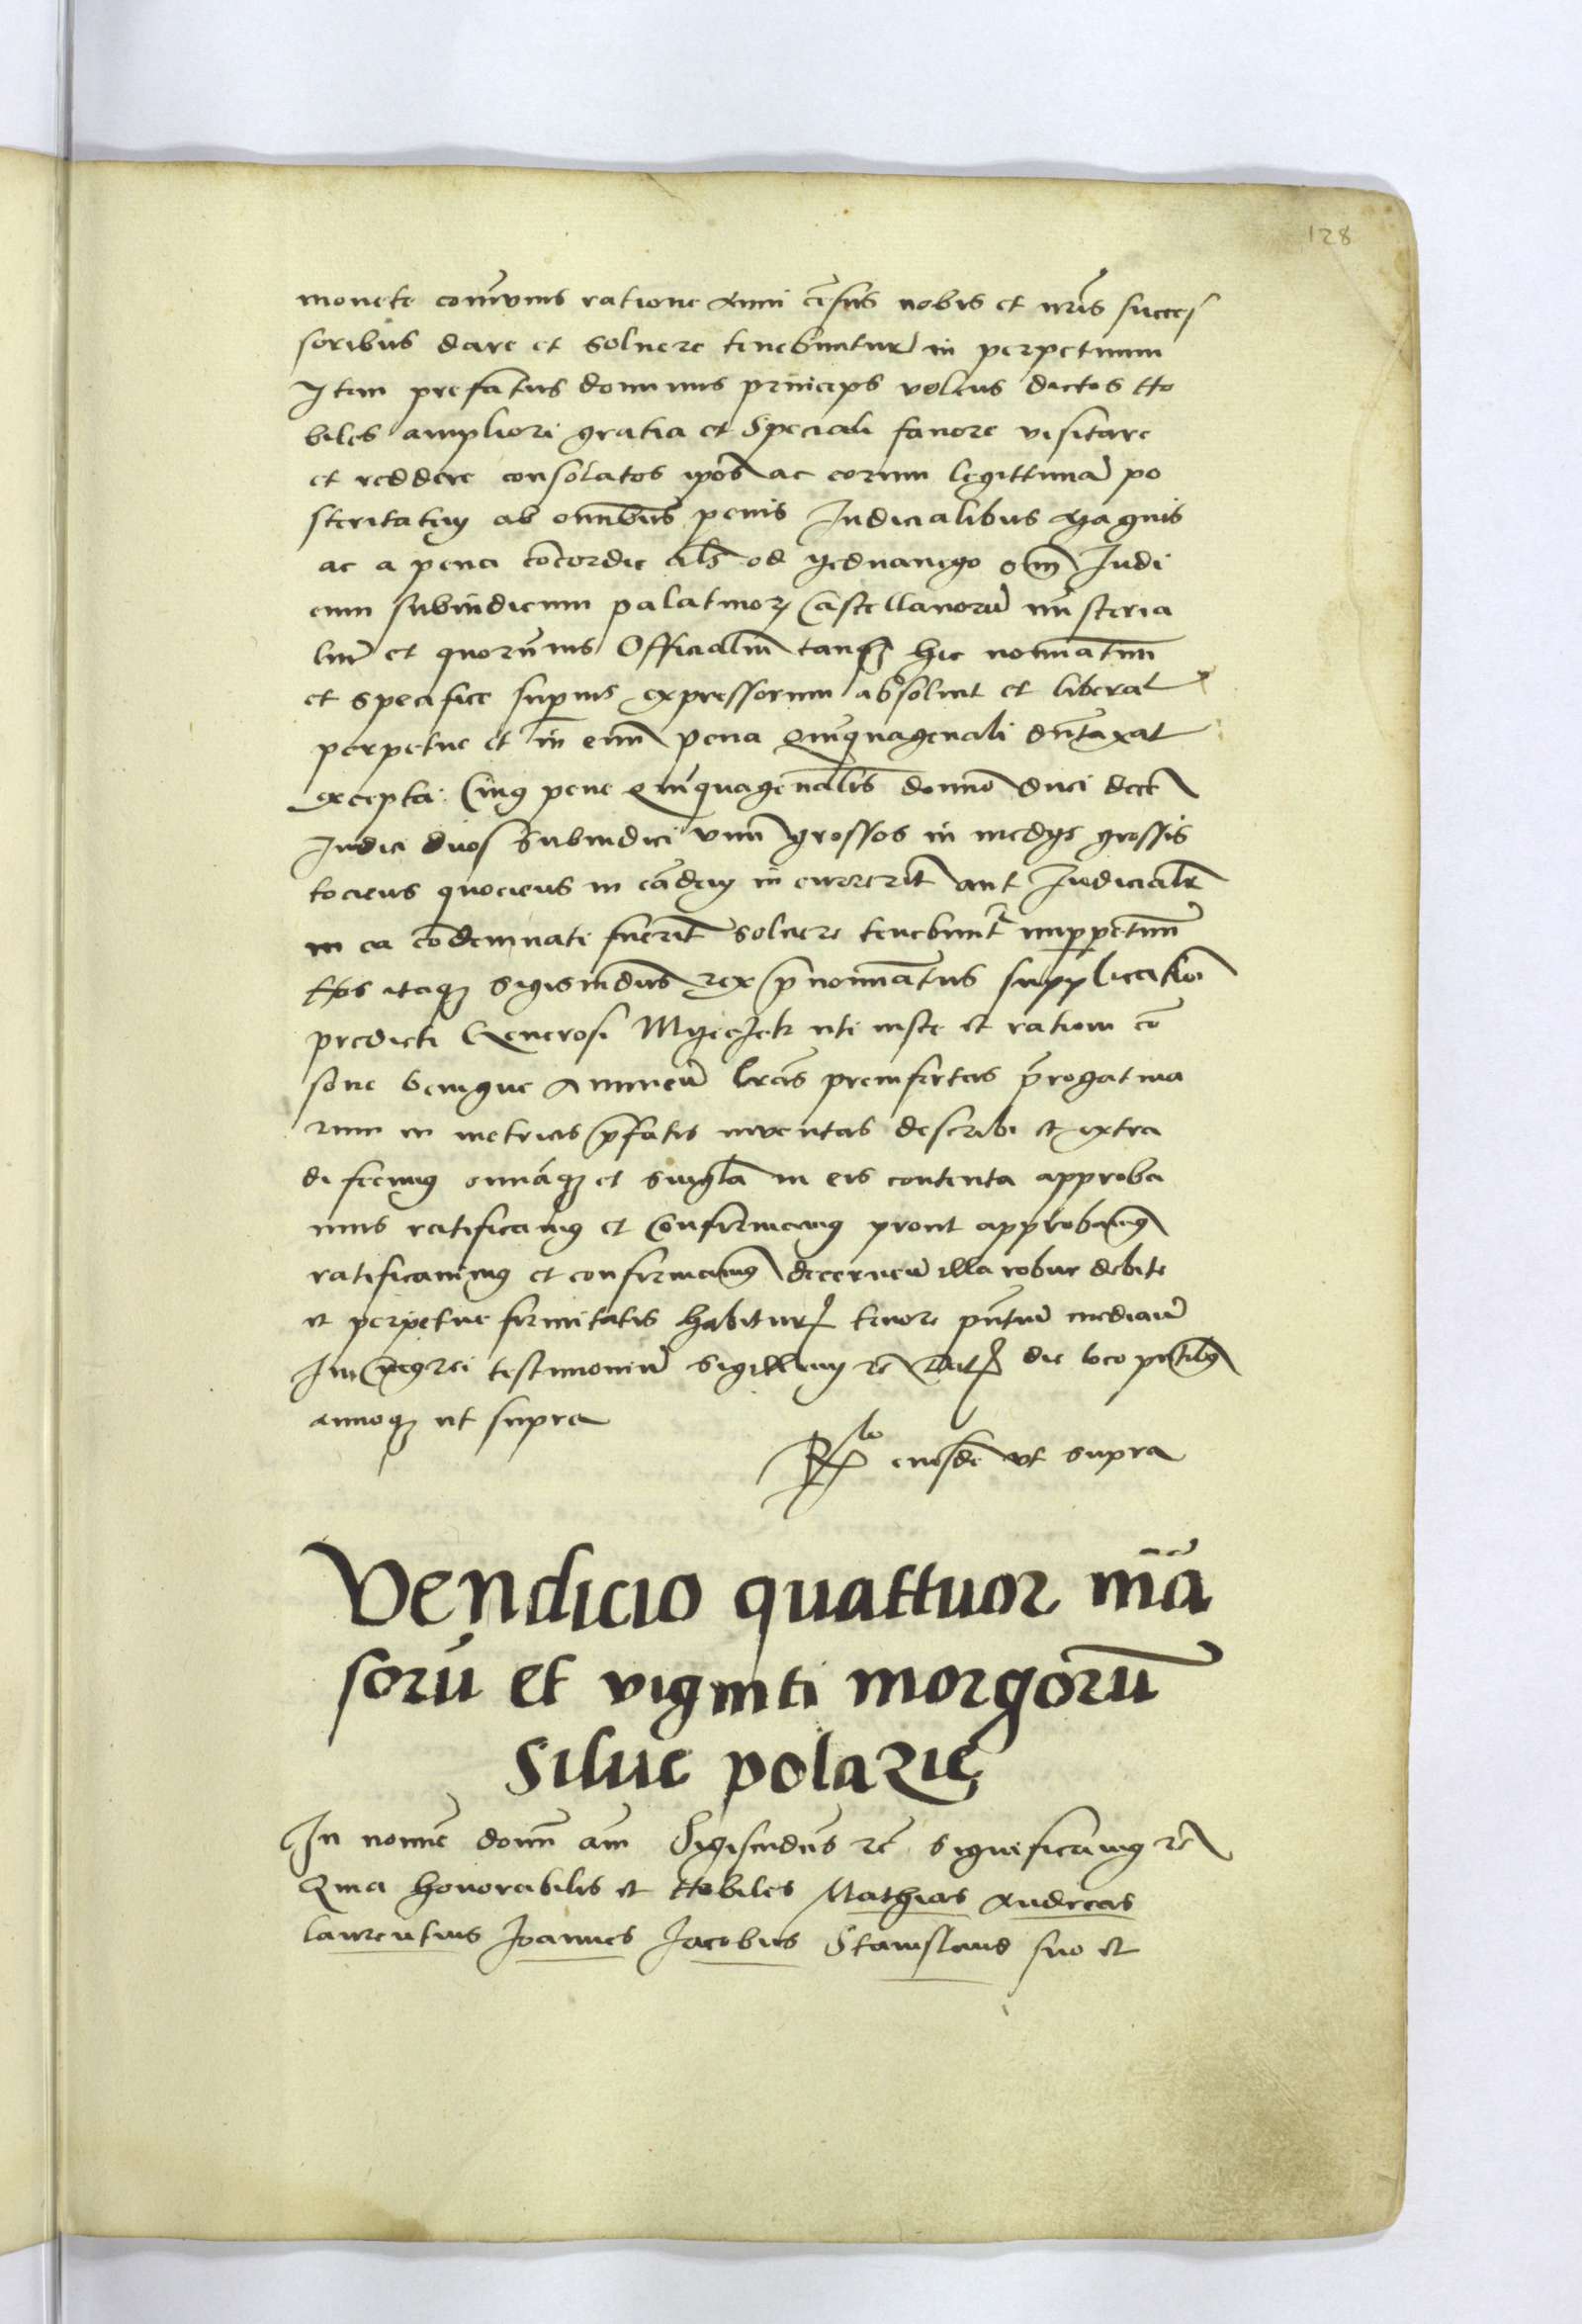 128
monete com̄unis ratione Anni cēsus nobis et nr̄is succes
soribus dare et soluere tenebuntur in perpetuum
Item prefatus dominus princeps volens dictos No
biles ampliori gratia et Speciali fauore visitare
et reddere consolatos ip̄os ac eorum legittimā po
steritatem ab om̄ibus penis Iudicialibus Magnis
ac a pena cōcordie als̄ od yednanego om̄ Iudi
cum subiudicum palatinorꝝ Castellanorū mīsteria
liū et quorūuis Officialiū tanqꝫ hic no̅iatim
et specifice sup̱ius expressorum absoluit et liberat
perpetue et in euū pena Quīquagenali dūtaxat
excepta Cuius pene Quīquagenalis domino duci decē
Iudici duos Subiudici vnū grossos in medys grossis
tociens quociens in eādem in currerīt aut Iudicialr̄
in ea cōdemnati fuerīt soluere tenebunt̄ imp̱petuū
Nos itaqꝫ Sigismūdus rex p̄nominatus supplicatiōi
predicti Generosi uti iuste et rationi cō
sone benigne Annuen̄ lr̄as preinsertas p̄rogatiua
rum in metricis p̄fatis inuentas describi et extra
di fecimus om̄iaqꝫ et singl̄a in eis contenta approba
mus ratificamus et Confirmamus prout approbamus
ratificamus et confirmamus decernen̄ illa robur debite
et perpetue firmitatis habitur̄ tenore p̄ntiū median̄
In cuius rei testimoniū Sigillum rē Dat̄ die loco p̄ntibus
annoqꝫ ut supra
Rlo eiusdē vt supra
Vendicio quattuor mā
sorū et viginti morgorū
silue polazie
In nomīe domī am̄ Sigismūdus rē significamus rē
Quia honorabilis et Nobiles Mathias Andreas
laurentius Ioannes Iacobus Stanislaus suo et